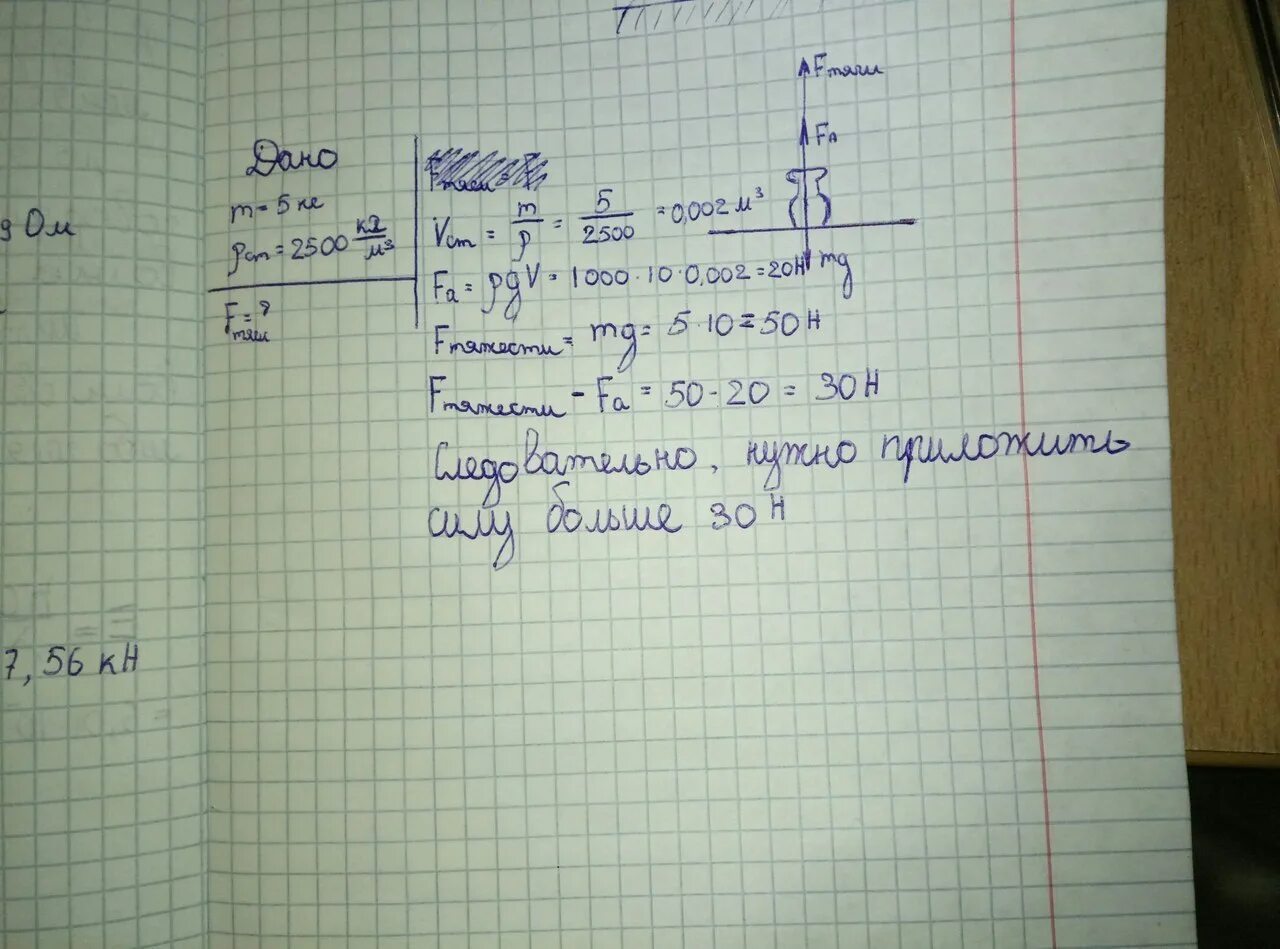 g Ом
7,56 кН
Дано
m = 5 кг
ρст = 2500 кг/м³
Fтяги = ?
Vст = m/ρ = 5/2500 = 0,002 м³
Fа = ρgV = 1000 · 10 · 0,002 = 20Н
Fтяжести = mg = 5 · 10 = 50 Н
Fтяжести - Fа = 50 - 20 = 30 Н
Следовательно, нужно приложить
силу больше 30 Н
Fтяги
FА
mg